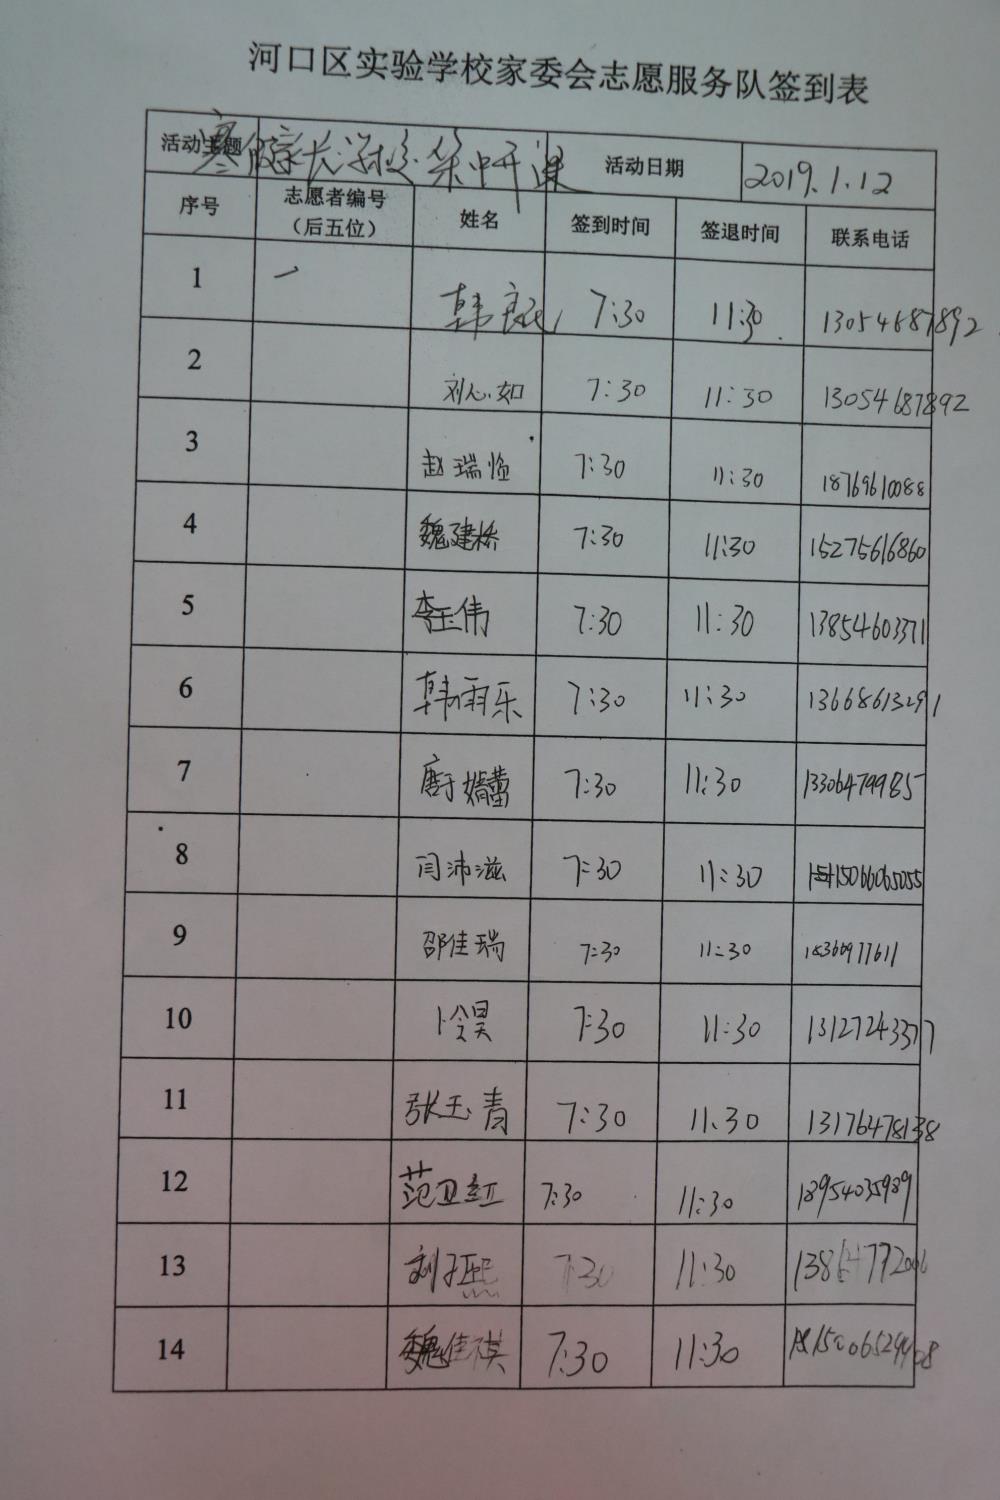 河口区实验学校家委会志愿服务队签到表
活动主题 寒假家长学校集中开课 活动日期 2019.1.12
序号 志愿者编号（后五位） 姓名 签到时间 签退时间 联系电话
1 韩 7:30 11:30 13054687892
2 刘心如 7:30 11:30 13054687892
3 赵瑞 7:30 11:30 18769610088
4 魏建桥 7:30 11:30 15275616860
5 李玉伟 7:30 11:30 13854603371
6 韩雨乐 7:30 11:30 13668613291
7 7:30 11:30 13306479985
8 闫沛滋 7:30 11:30 15066065055
9 邵佳瑞 7:30 11:30 18360977611
10 冷昊 7:30 11:30 13127243377
11 张玉青 7:30 11:30 13176478138
12 范卫红 7:30 11:30 18954035989
13 刘子熙 7:30 11:30
14 魏佳祺 7:30 11:30